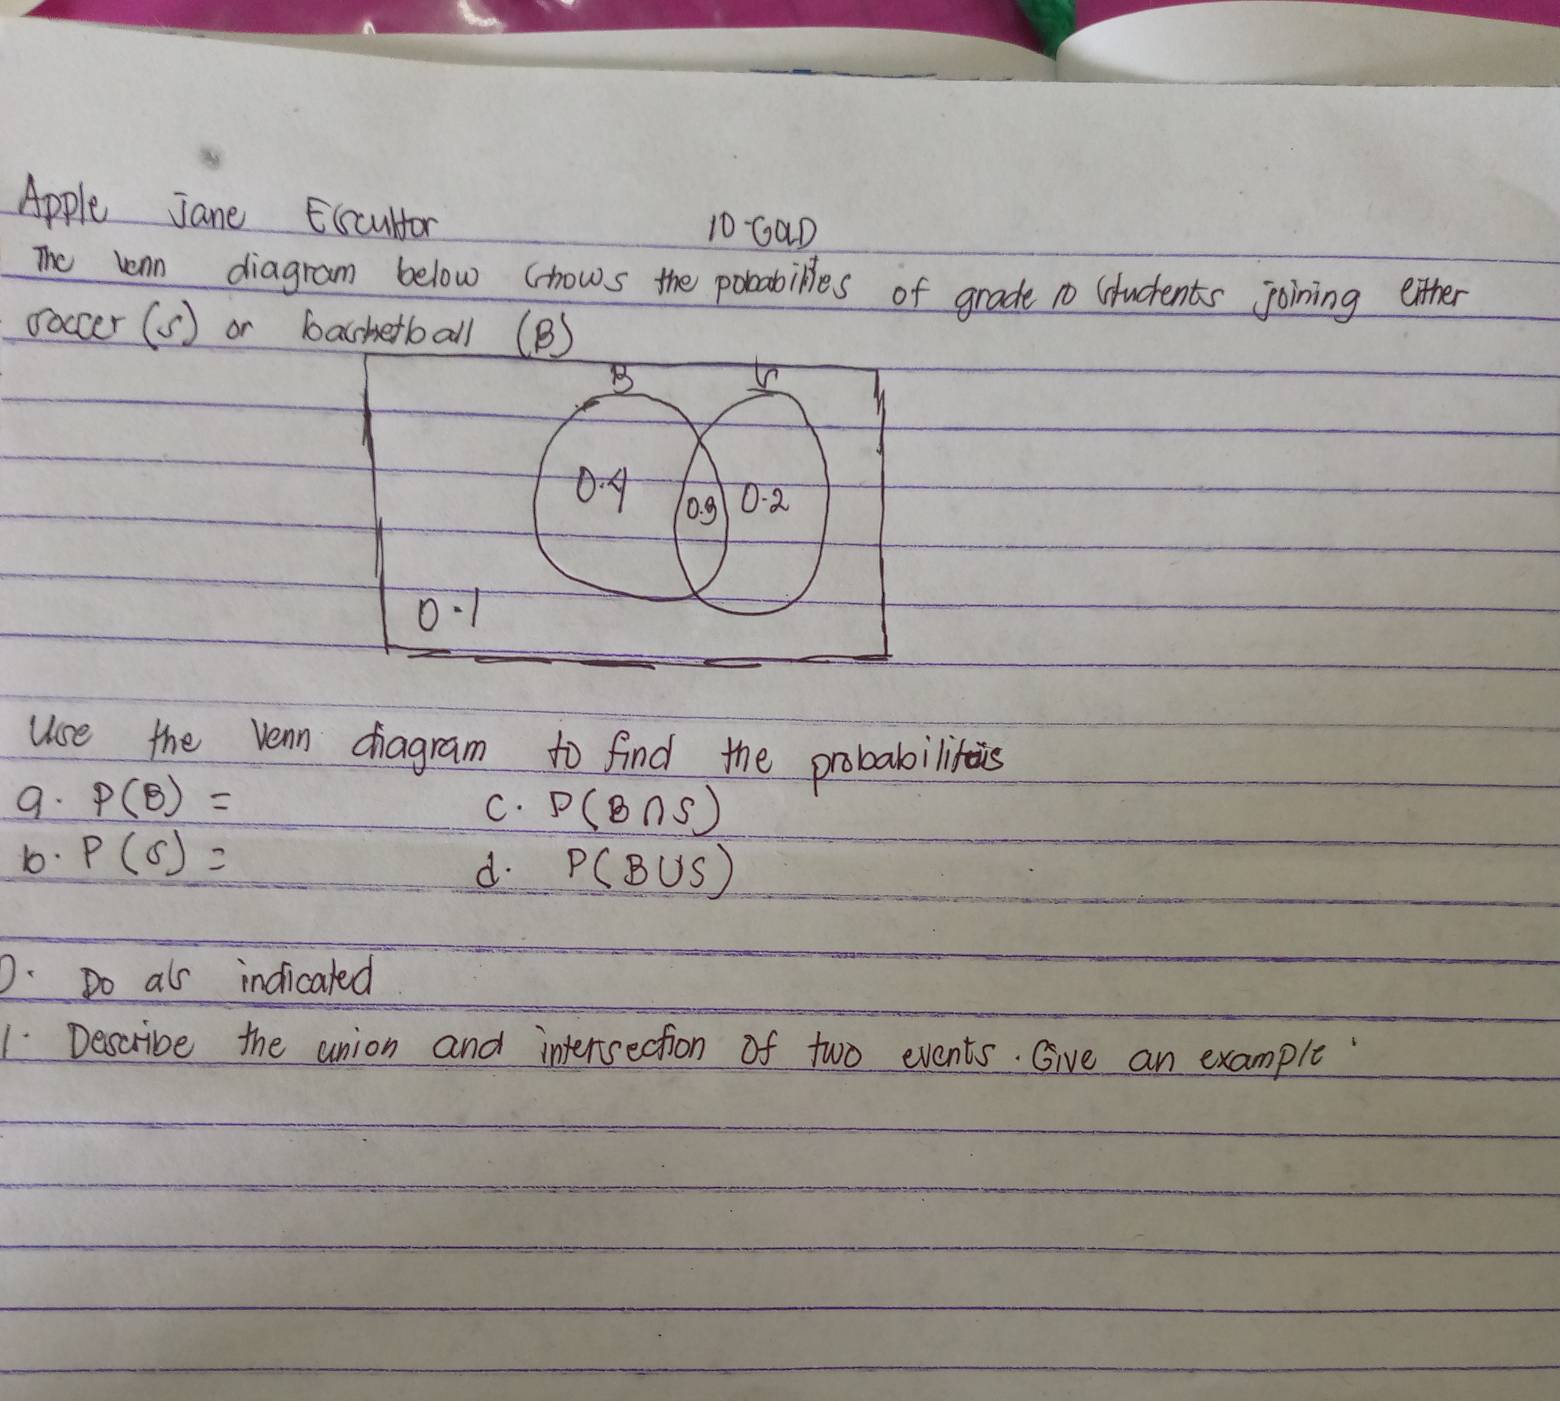 Apple Jane Escultor 10-GOLD
The Venn diagram below shows the pobabilities of grade 10 students joining either
soccer (S) or basketball (B)
B S
0.4 0.3 0.2
0.1
Use the Venn diagram to find the probabilities
a. P(B) = c. P(B∩S)
b. P(S) = d. P(BUS)
D. Do as indicated
1. Describe the union and intersection of two events. Give an example.